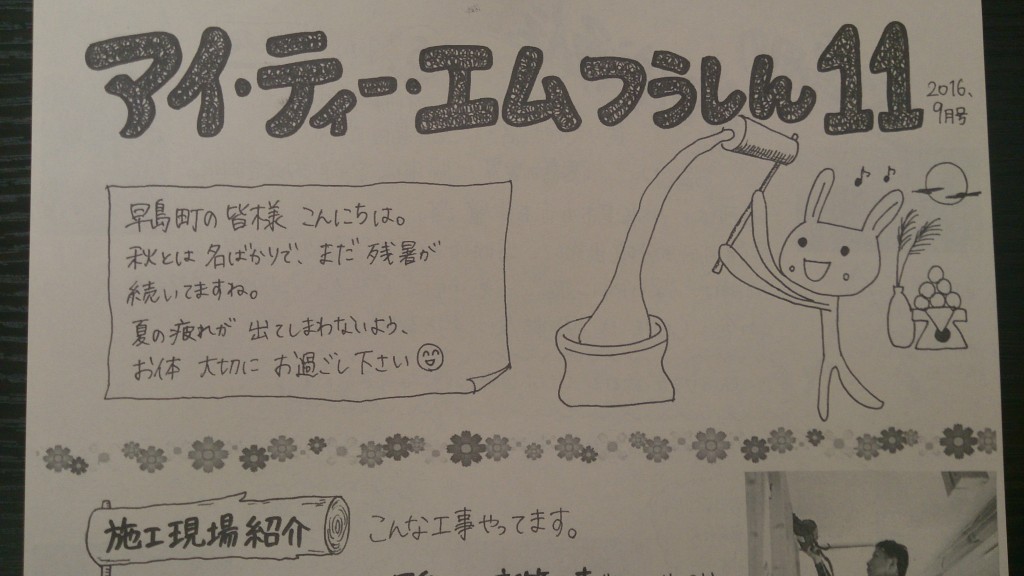 アイ・ティー・エムつうしん11
2016、
9月号
早島町の皆様 こんにちは。
秋とは名ばかりで、まだ残暑が
続いてますね。
夏の疲れが 出てしまわないよう、
お体 大切に お過ごし下さい
施工現場紹介
こんな工事やってます。